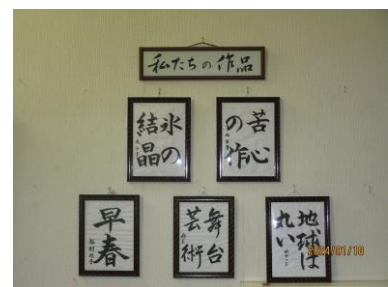 私たちの作品
氷の
結晶
苦心
の作
早春
舞台
芸術
地球は
丸い
2024/01/10